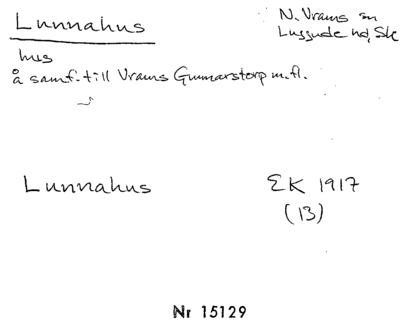 Lunnahus
N. Vrams sn
Luggude hd, Sk
hus
å samf. till Vrams Gunnarstorp m.fl.
Lunnahus
EK 1917
(13)
Nr 15129